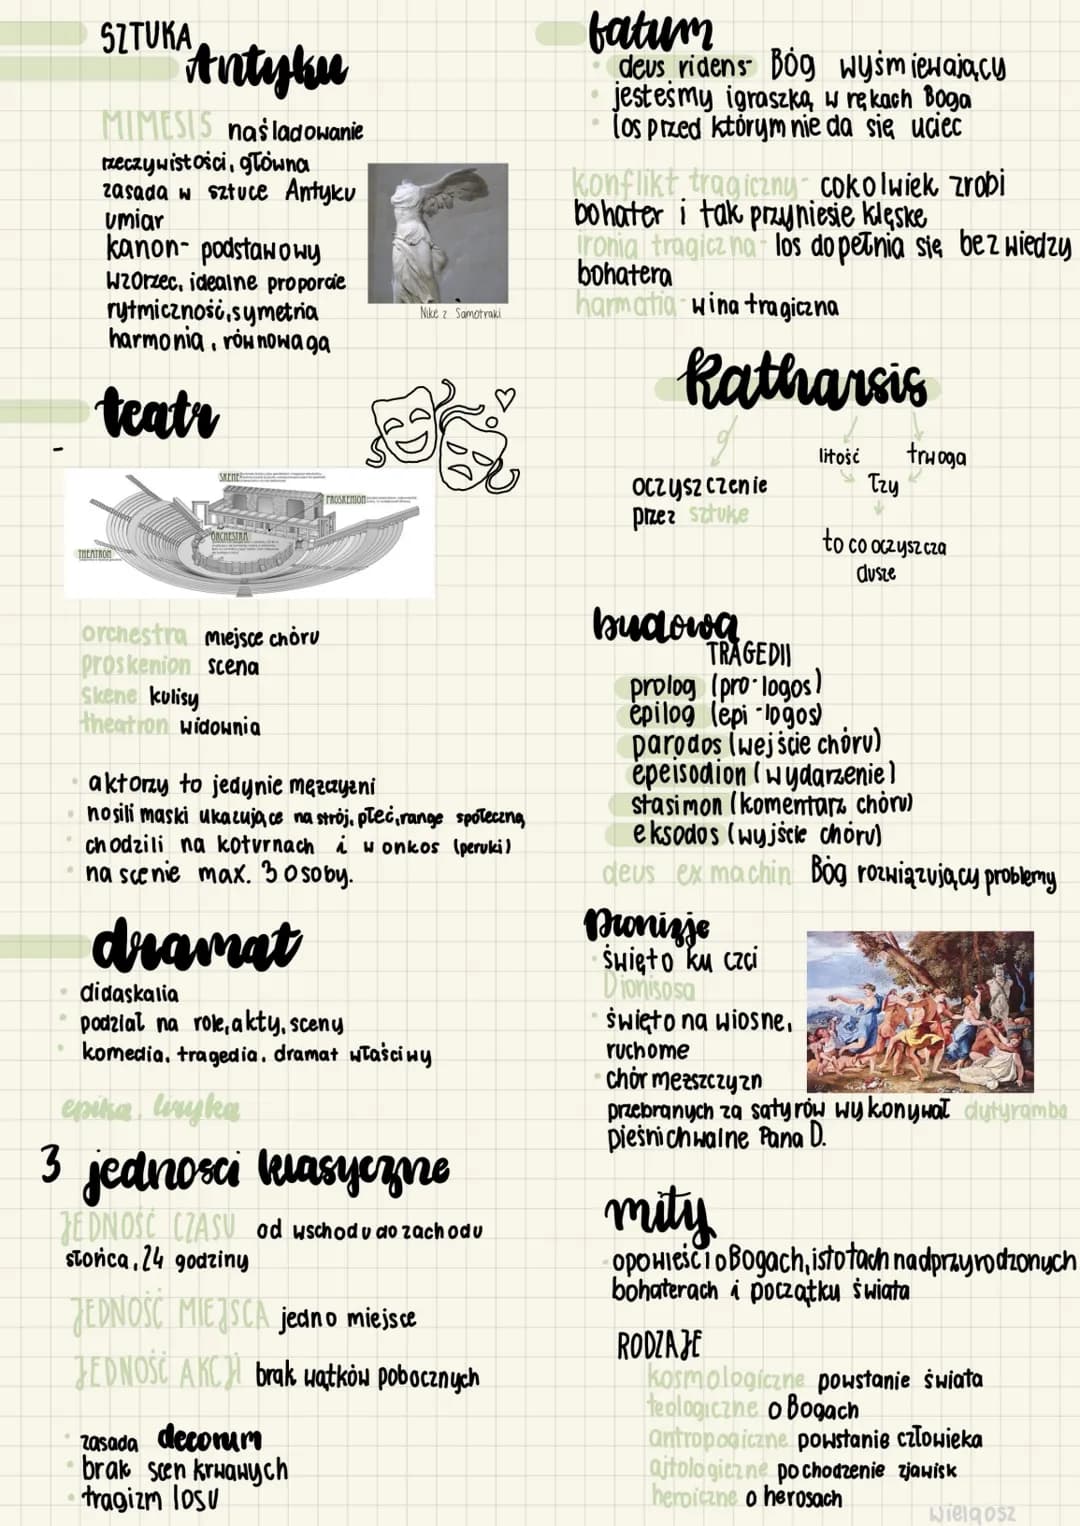 SZTUKA
Antyku
MIMESIS naśladowanie
rzeczywistości, główna
zasada w sztuce Antyku
umiar
kanon- podstawowy
wzorzec, idealne proporcje
rytmiczność, symetria
harmonia, równowaga
Nike z Samotraki
teatr
SKENE
PROSKENION
ORCHESTRA
THEATRON
orchestra miejsce chóru
proskenion scena
skene kulisy
theatron widownia
aktorzy to jedynie mężczyźni
nosili maski ukazujące nastrój, płeć, range społeczną
chodzili na koturnach i w onkos (peruki)
na scenie max. 3 osoby.
dramat
didaskalia
podział na role, akty, sceny
komedia, tragedia, dramat właściwy
epika, liryka
3 jedności klasyczne
JEDNOŚĆ CZASU od wschodu do zachodu
słońca, 24 godziny
JEDNOŚĆ MIEJSCA jedno miejsce
JEDNOŚĆ AKCJI brak wątków pobocznych
zasada decorum
brak scen krwawych
tragizm losu
fatum
deus ridens- Bóg wyśmiewający
jesteśmy igraszką w rękach Boga
los przed którym nie da się uciec
konflikt tragiczny- cokolwiek zrobi
bohater i tak przyniesie klęske
ironia tragiczna- los dopełnia się bez wiedzy
bohatera
harmatia- wina tragiczna
katharsis
oczyszczenie
przez sztuke
litość trwoga
łzy
to co oczyszcza
dusze
budowa
TRAGEDII
prolog (pro-logos)
epilog (epi-logos)
parodos (wejście chóru)
epeisodion (wydarzenie)
stasimon (komentarz chóru)
eksodos (wyjście chóru)
deus ex machin Bóg rozwiązujący problemy
Dionizje
święto ku czci
Dionisosa
święto na wiosne,
ruchome
chór meższczyzn
przebranych za satyrów wykonywał dytyramba
pieśni chwalne Pana D.
mity
opowieści o Bogach, istotach nadprzyrodzonych
bohaterach i początku świata
RODZAJE
kosmologiczne powstanie świata
teologiczne o Bogach
antropogiczne powstanie człowieka
ajtologiczne pochodzenie zjawisk
heroiczne o herosach
wielgosz